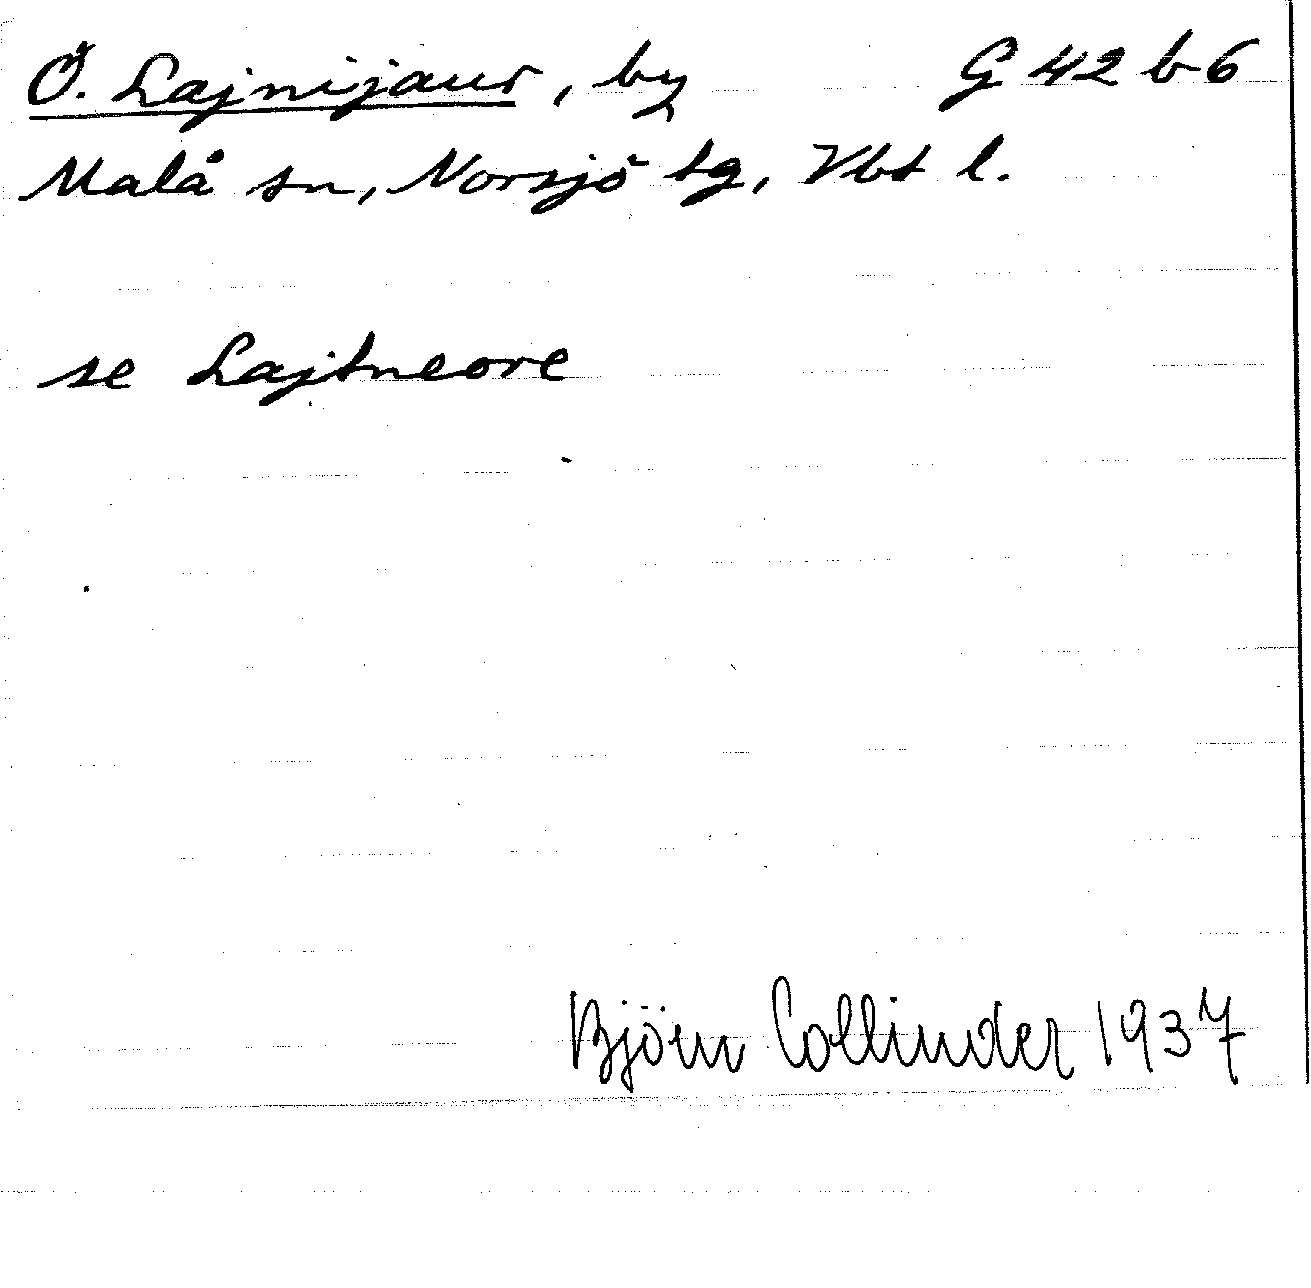 Ö. Lajnijaur, by G 42 b 6
Malå sn, Norsjö tg, Vbt l.
se Lajtneore
Björn Collinder 1937